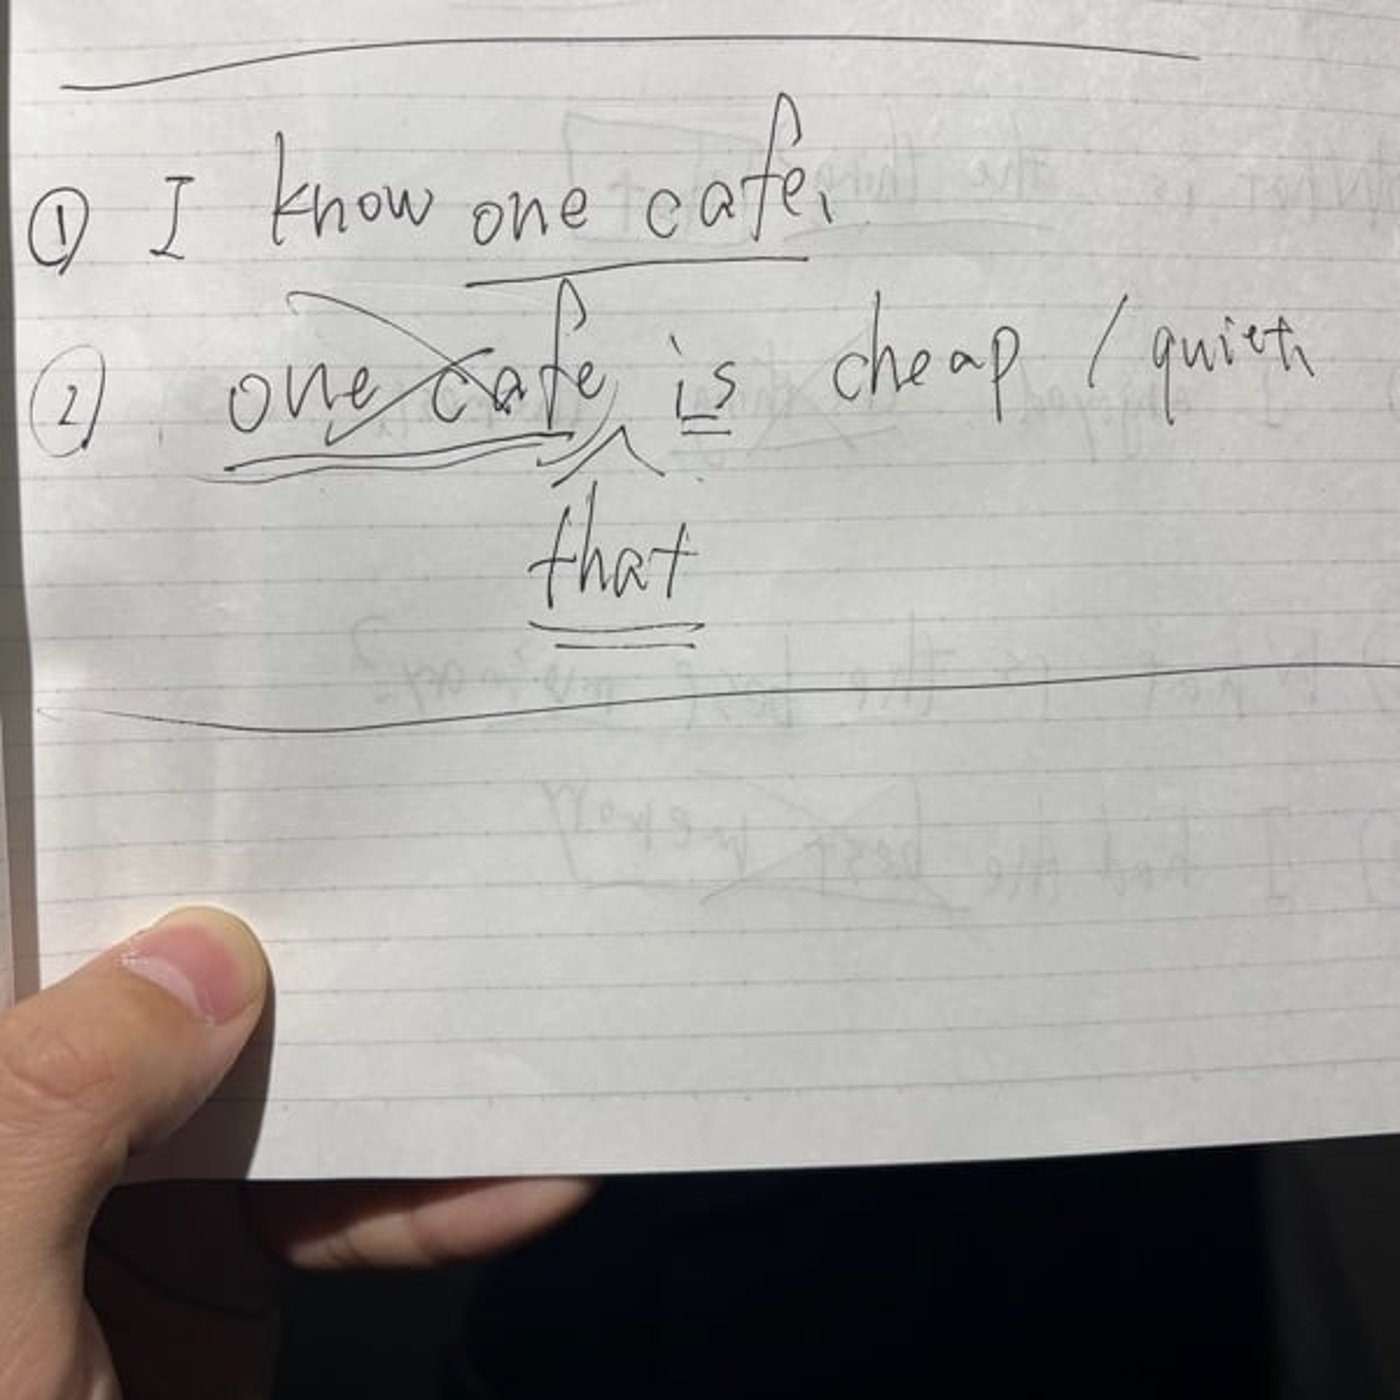 ① I know one cafe.
② one cafe is cheap / quiet.
that